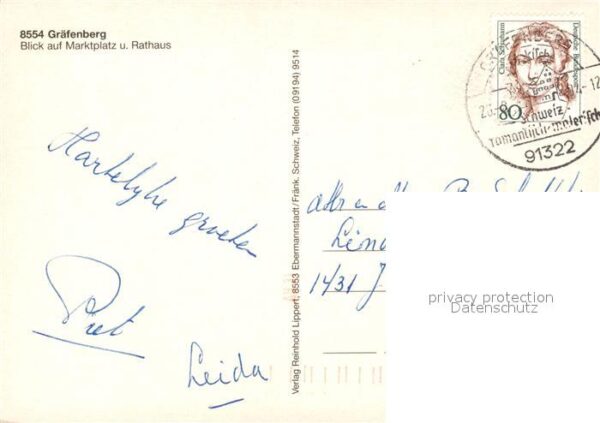 8554 Gräfenberg
Blick auf Marktplatz u. Rathaus
Hartelyke groeten
Piet
Leida
Verlag Reinhold Lippert, 8553 Ebermannstadt/Fränk. Schweiz, Telefon (09194) 9514
Clara Schumann
Deutsche Bundespost
80
Schweiz-
romantisch-malerisch
91322
1431 J
privacy protection
Datenschutz